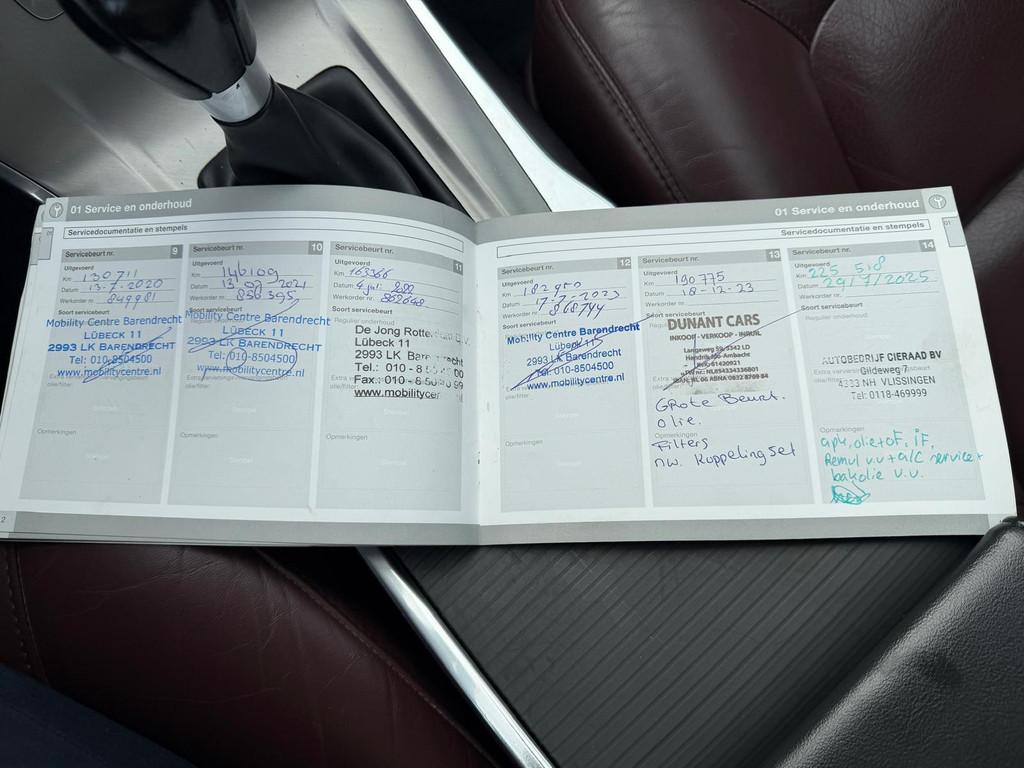 01 Service en onderhoud
Servicedocumentatie en stempels
Servicebeurt nr. 9
Uitgevoerd
Km 130711
Datum 13-7-2020
Werkorder nr. 849981
Soort servicebeurt
Mobility Centre Barendrecht
LÜBECK 11
2993 LK BARENDRECHT
Tel: 010-8504500
www.mobilitycentre.nl
olie/filter
Opmerkingen
Servicebeurt nr. 10
Uitgevoerd
Km 146109
Datum 13 07 2021
Werkorder nr. 856395
Soort servicebeurt
Mobility Centre Barendrecht
LÜBECK 11
2993 LK BARENDRECHT
Tel: 010-8504500
www.mobilitycentre.nl
olie/filter
Opmerkingen
Servicebeurt nr. 11
Uitgevoerd
Km 163366
Datum 4 juli
Werkorder nr. 862648
Soort servicebeurt
Regulier onderhoud
De Jong
Lübeck 11
2993 LK
Tel.: 010 - 8
Fax.: 010 - 8
www.mobilitycer
Opmerkingen
01 Service en onderhoud
Servicedocumentatie en stempels
01
Servicebeurt nr. 12
Uitgevoerd
Km
Datum 17-7-2023
Werkorder nr. 868744
Soort servicebeurt
Mobility Centre Barendrecht
Lübeck 11
2993 LK Barendrecht
Tel: 010-8504500
www.mobilitycentre.nl
olie/filter
Opmerkingen
Servicebeurt nr. 13
Uitgevoerd
Km 190775
Datum 18-12-23
Werkorder nr.
Soort servicebeurt
DUNANT CARS
INKOOP - VERKOOP - INRUIL
Langeweg 59, 3342 LD
Hendrik-Ido-Ambacht
Grote Beurt.
olie.
Opmerkingen
Filters
nw. Koppeling set
Servicebeurt nr. 14
Uitgevoerd
Km 225 518
Datum 29/7/2025
Werkorder nr.
Soort servicebeurt
Regulier onderhoud
AUTOBEDRIJF CIERAAD BV
Gildeweg 7
4383 NH VLISSINGEN
Tel: 0118-469999
olie/filter
Opmerkingen
apk, olie+oF, iF,
Remvl v.v + a/c service +
bakolie v.v.
2